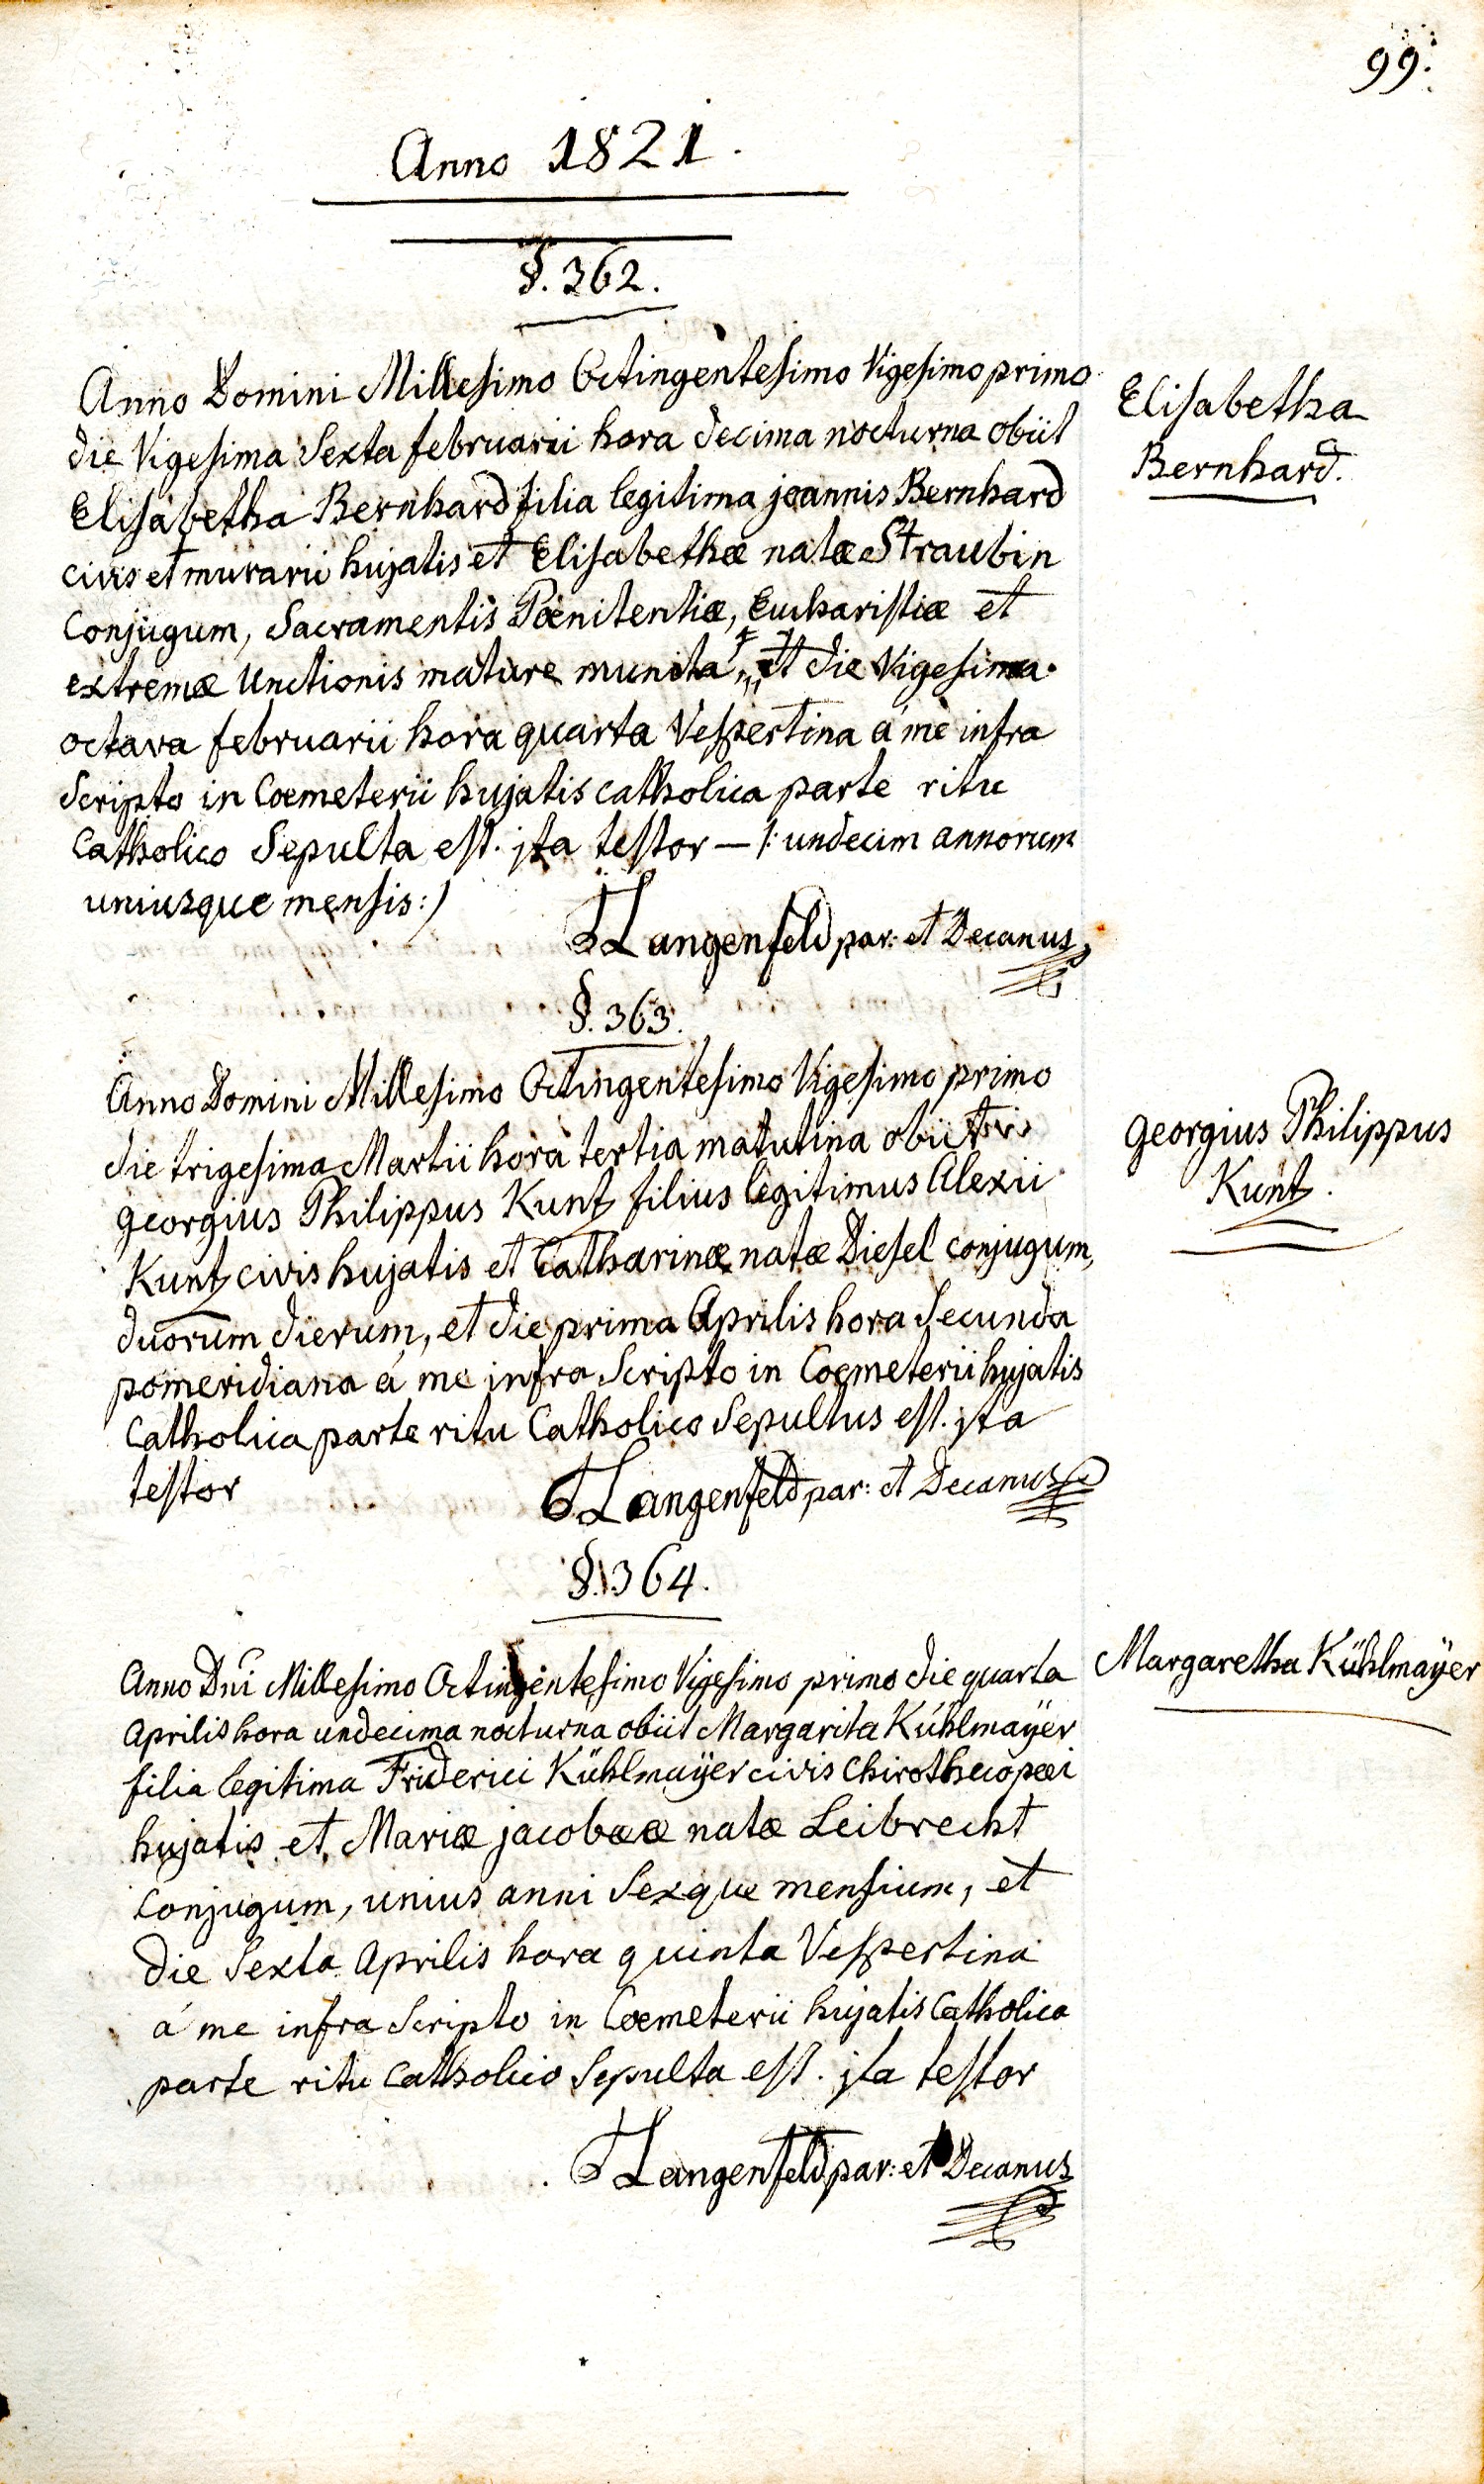 99.
Anno 1821.
§. 362.
Anno Domini Millesimo Octingentesimo Vigesimo primo
die Vigesima Sexta februarii hora decima nocturna obiit
Elisabetha Bernhard filia legitima joannis Bernhard
civis et murarii hujatis et Elisabethæ natæ Straubin
Conjugum, Sacramentis Pœnitentiæ, Eucharistiæ et
extremæ Unctionis mature munita, et die Vigesima
octava februarii hora quarta Vespertina á me infra
Scripto in Cœmeterii hujatis catholica parte ritu
Catholico Sepulta est. jta testor — /: undecim annorum
uniusque mensis :/
Langenfeld par: et Decanus
Elisabetha
Bernhard.
§. 363.
Anno Domini Millesimo Octingentesimo Vigesimo primo
die trigesima Martii hora tertia matutina obiit
georgius Philippus Kuntz filius legitimus Alexii
Kuntz civis hujatis et Catharinæ natæ Diesel conjugum,
duorum dierum, et die prima Aprilis hora Secunda
pomeridiana á me infra Scripto in Cœmeterii hujatis
Catholica parte ritu Catholico Sepultus est. jta
testor
Langenfeld par: et Decanus
georgius Philippus
Kuntz.
§. 364.
Anno Dni Millesimo Octingentesimo Vigesimo primo die quarta
Aprilis hora undecima nocturna obiit Margarita Kühlmaÿer
filia legitima Friderici Kühlmaÿer civis Chirothecopœi
hujatis et Mariæ jacobææ natæ Leibrecht
Conjugum, unius anni Sexque mensium, et
die Sexta Aprilis hora quinta Vespertina
á me infra Scripto in Cœmeterii hujatis Catholica
parte ritu Catholico Sepulta est. jta testor
Langenfeld par: et Decanus
Margaretha Kühlmaÿer